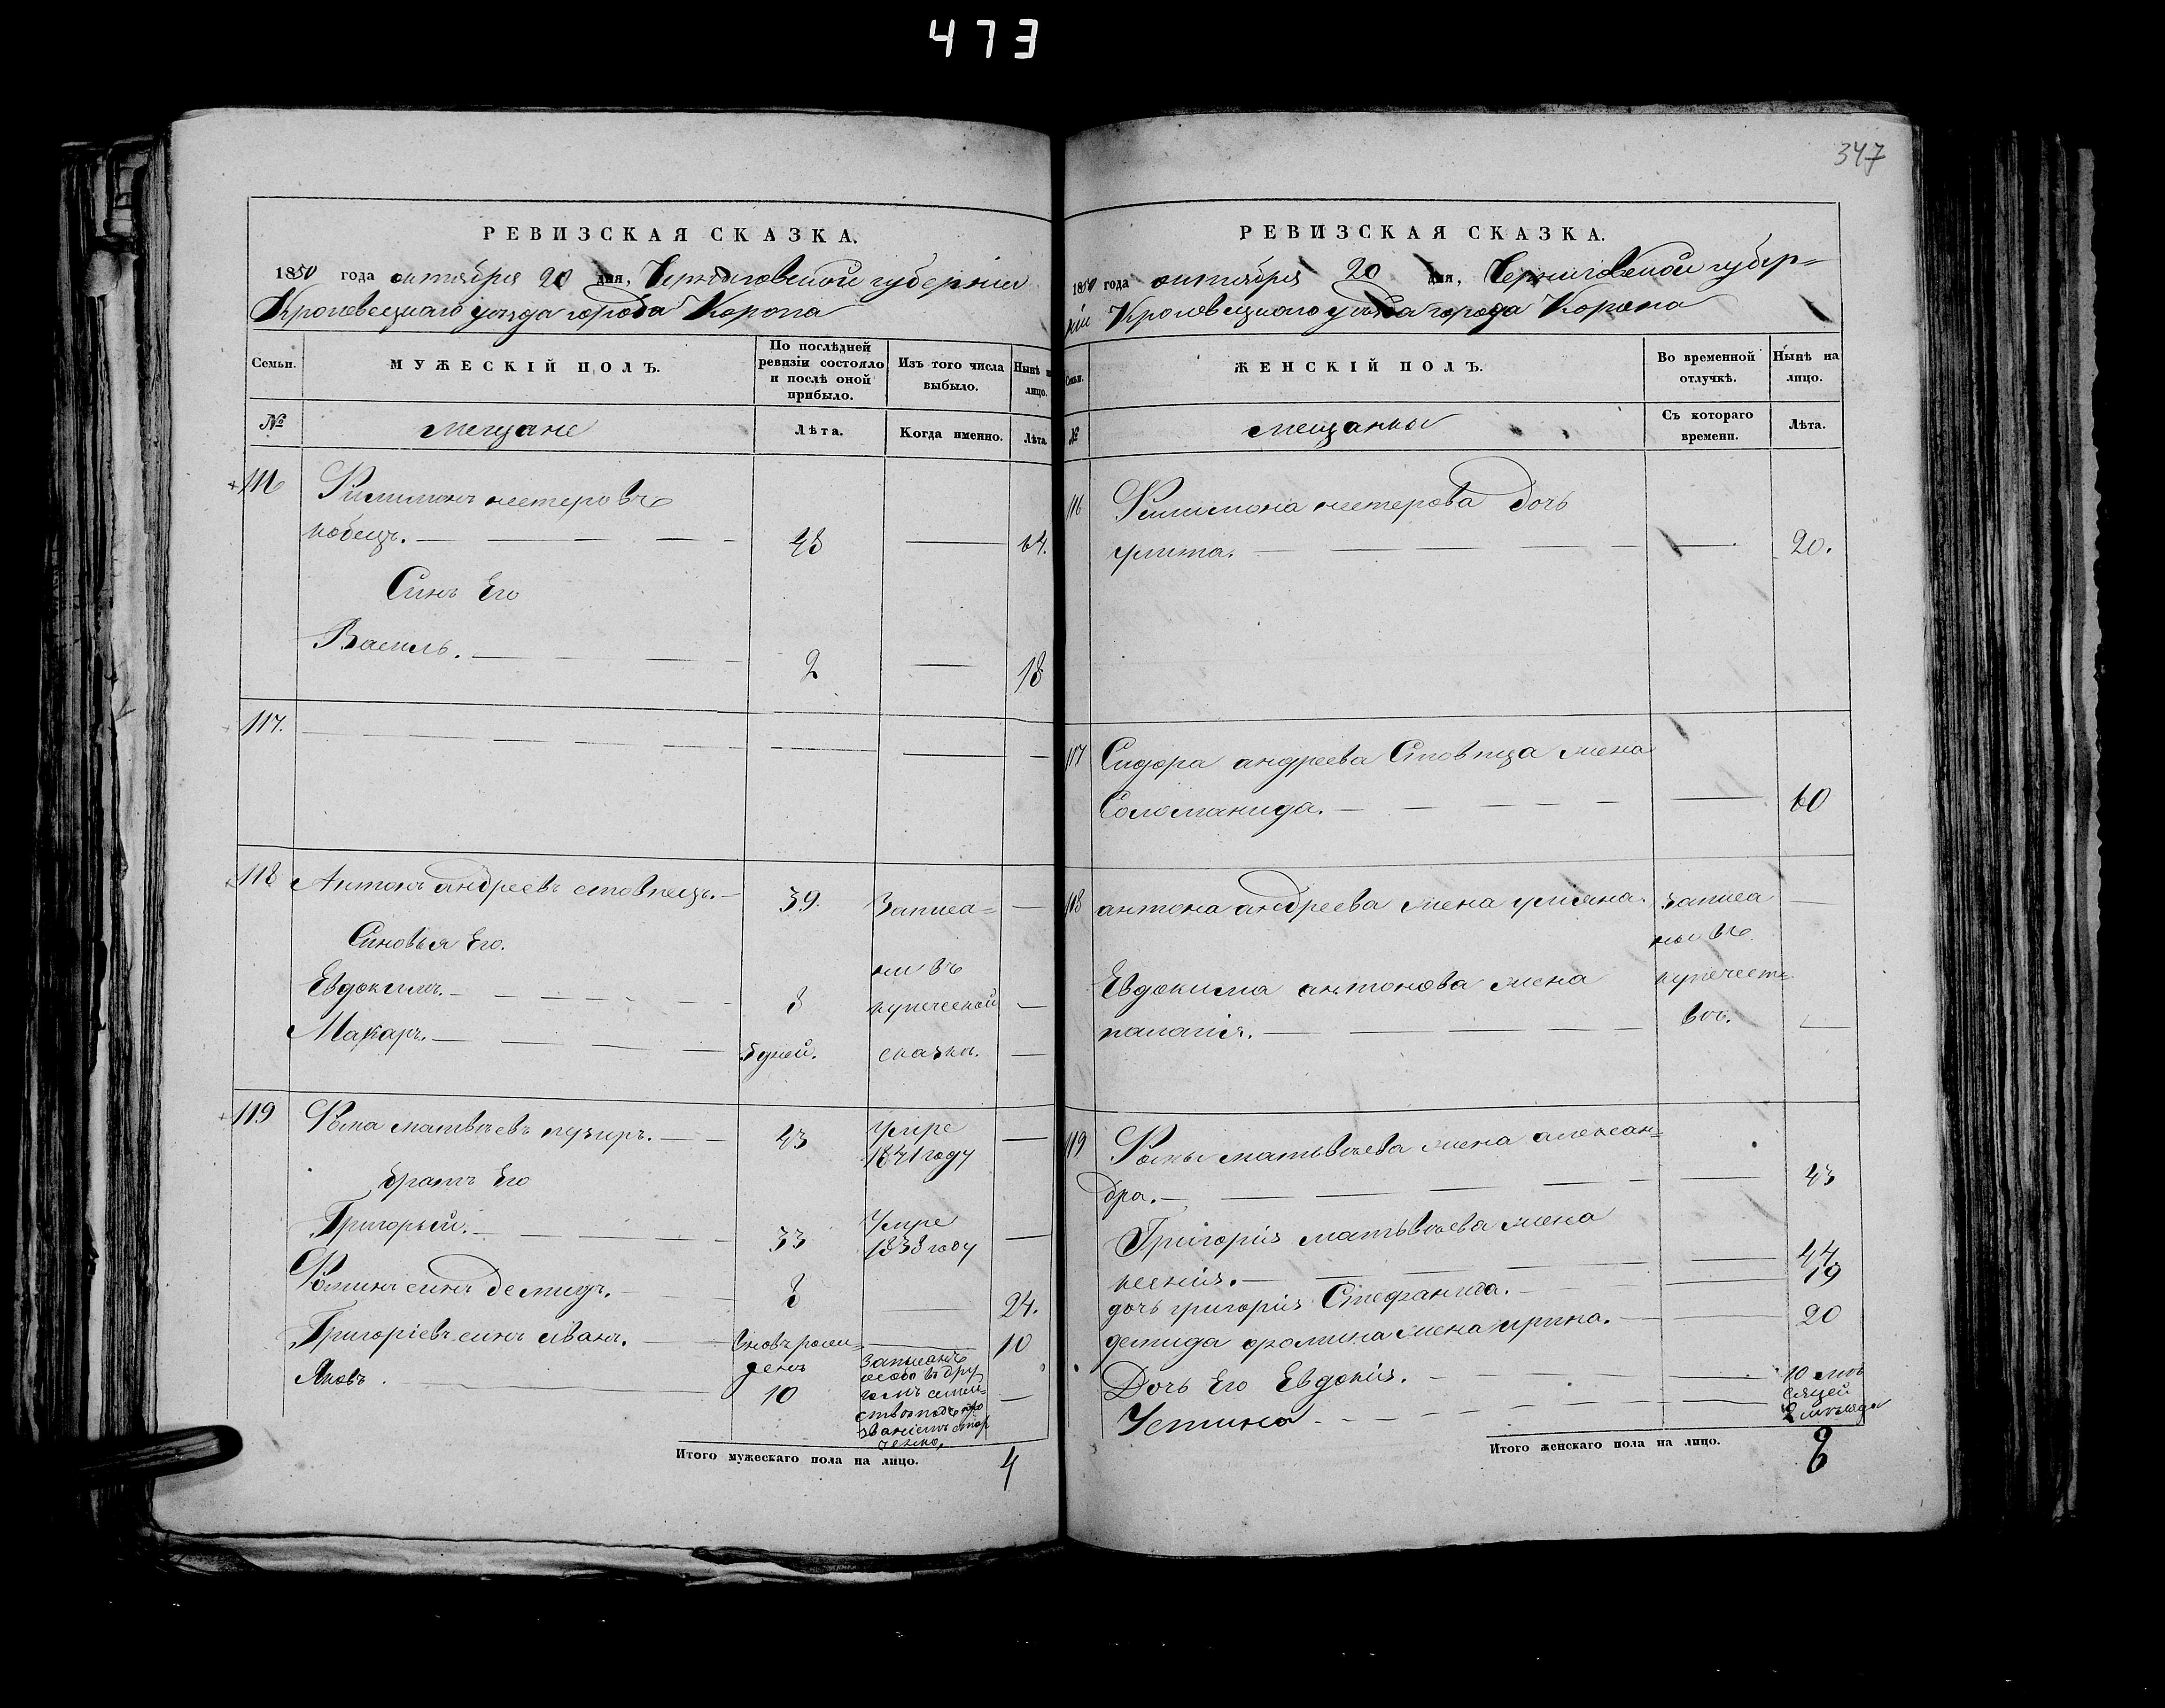 473
347
РЕВИЗСКАЯ СКАЗКА.
1850 года октября 20 дня, Черниговской губерніи
Кролевецкаго уезда города Коропа
Семьи.
МУЖЕСКІЙ ПОЛЪ.
По послѣдней ревизіи состояло и послѣ оной прибыло.
Изъ того числа выбыло.
Нынѣ на лицо.
№
мещане
Лѣта.
Когда именно.
Лѣта.
116 Филимонъ нестеровъ
кобецъ. 48 64.
Синъ Его
Василь. 2 18
117.
118 Антонъ андреевъ стовпецъ. 39. Записа=
Синовья Его. ни въ
Евдокимъ. 8 купеческой
Макаръ. 5 дней. сказки.
119 Фома матвѣевъ пузиръ. 43 Умре 1841 году
братъ Его
Григорьий. 33 Умре 1838 году
Фоминъ синъ демидъ. 8 24.
Григоріевъ синъ иванъ. вновъ рож= 10
денъ
Яковъ. 10 Записанъ
особо въ дру
гомъ семей=
Итого мужескаго пола на лицо. 4
РЕВИЗСКАЯ СКАЗКА.
1850 года октября 20 дня, Черниговской губер=
ніи Кролевецкаго уѣзда города Коропа
Семьи.
ЖЕНСКІЙ ПОЛЪ.
Во временной отлучкѣ.
Нынѣ на лицо.
№
мещанки
Съ котораго времени.
Лѣта.
116 Филимона нестерова дочь
улита. 20.
117 Сидора андреева Стовпца жена
Соломанида. 60
118 антона андреева жена улияна. записа
ны въ
Евдокима антонова жена купечест
палагія. вѣ.
119 Фомы матьвѣева жена алексан=
дра. 43
Григорія матьвѣева жена
ксенія. 44
дочь григорія Стефанида. 19
демида фомина жена ирина. 20
Дочь Его Евдокія. 10 мѣ
сяцей
Устина 2 мѣсяца
Итого женскаго пола на лицо. 8